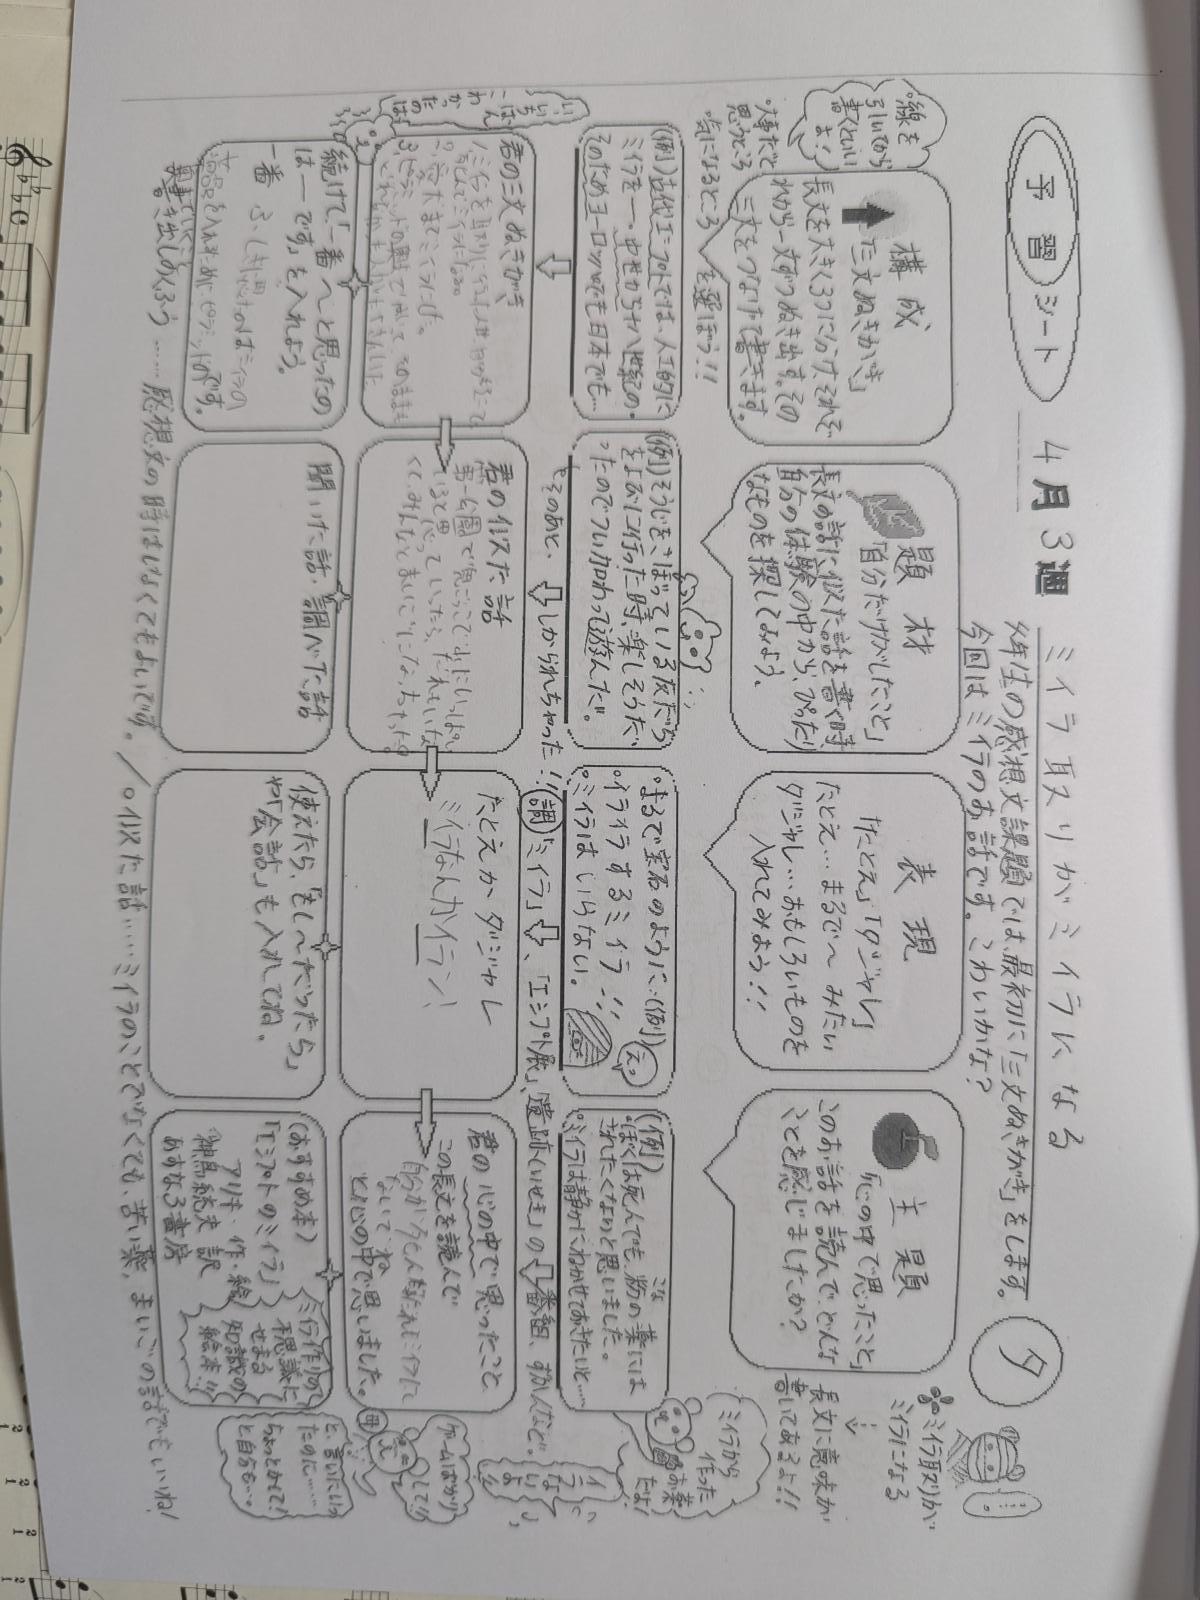 予習シート
4月3週
ミイラ取りがミイラになる
タ
今回はミイラのお話です。こわいかな?
ミイラ取りが
ミイラになる
長文に意味が
書いてあるよ!!
線を
引いてから
書くといい
よ!
構成
「三文ぬきがき」
長文を大きく3つに分け、それぞ
れから一文ずつぬき出す。その
三文をつなげて書きます。
・大事だと
思うところ
・気になるところ
を選ぼう!!
題材
「自分だけがしたこと」
長文の話に似た話を書く時、
自分の体験の中から、ぴったり
なものを探してみよう。
表現
「たとえ」「ダジャレ」
たとえ…まるで〜みたい
ダジャレ…おもしろいものを
入れてみよう!!
主題
「心の中で思ったこと」
このお話を読んで、どんな
ことを感じましたか?
(例)古代エジプトでは、人工的に
ミイラを―・中世から十八世紀の・
そのためヨーロッパでも日本でも…
(例)そうじをさぼっている友だち
をよびに行った時、楽しそうだ
ったのでつい加わって遊んだ!!。
・そのあと、しかられちゃった!!
・まるで宝石のように…(例)
・イライラするミイラ…!!
・ミイラはいらない。
(例)
・ぼくは死んでも、粉の薬には
こな
されたくないと思いました。
・ミイラは静かにねかせておきたいと……
ミイラから
作った
お薬
だよ!
調「ミイラ」、「エジプト展」、「遺跡(いせき)」の番組、ずかんなど。
君の三文ぬきがき
君の似た話
たとえかダジャレ
ミイラなんかイラン!
君の心の中で思ったこと
この長文を読んで
と心の中で思いました。
続けて「一番〜と思ったの
は―です」を入れよう。
聞いた話・調べた話
使えたら、「もし〜だったら」
や「会話」も入れてね。
(おすすめ本)
「エジプトのミイラ」
アリキ・作・絵
神鳥統夫 訳
あすなろ書房
ミイラ作りの
不思議に
せまる
知識の
絵本!!
ゲームばかり
して!!
母
と、言いにいっ
たのに……
ちょっとかして!!
と自分も…。
書き出しのくふう……感想文の時はしなくてもよいです。/○似た話……ミイラのことでなくても、苦い薬、まいごの話でもいいね!